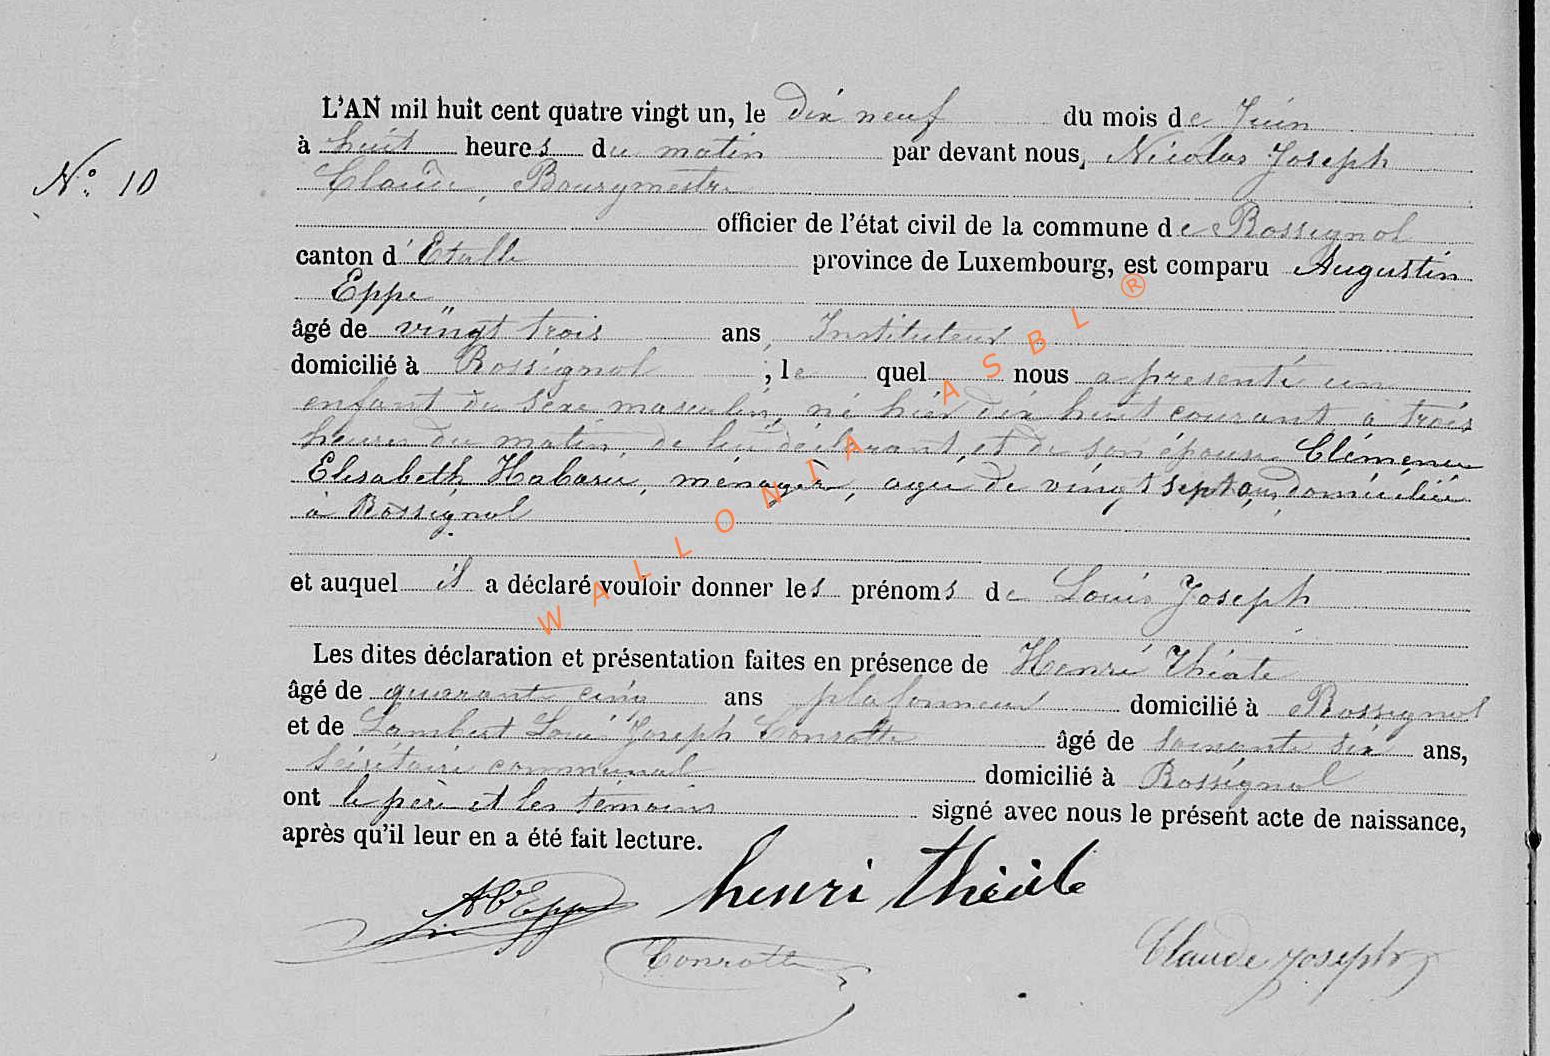 L'AN mil huit cent quatre vingt un, le dix neuf du mois de Juin
N° 10
à huit heures du matin par devant nous, Nicolas Joseph
Claude, Bourgmestre
officier de l'état civil de la commune de Rossignol
canton d'Etalle province de Luxembourg, est comparu Augustin
Eppe
âgé de vingt trois ans, Instituteur
domicilié à Rossignol, lequel nous a présenté un
enfant du sexe masculin, né hier dix huit courant à trois
heures du matin, de lui déclarant, et de son épouse Clémence
Elisabeth Habaru, ménagère, agée de vingt sept ans, domiciliée
à Rossignol
et auquel il a déclaré vouloir donner les prénoms de Louis Joseph
Les dites déclaration et présentation faites en présence de Henri Théate
âgé de quarante cinq ans plafonneur domicilié à Rossignol
et de Lambert Louis Joseph Conrotte âgé de soixante six ans,
Sécrétaire communal domicilié à Rossignol
ont le père et les témoins signé avec nous le présent acte de naissance,
après qu'il leur en a été fait lecture.
Eppe henri théate
Conrotte Claude Joseph
WALLONIA ASBL ®